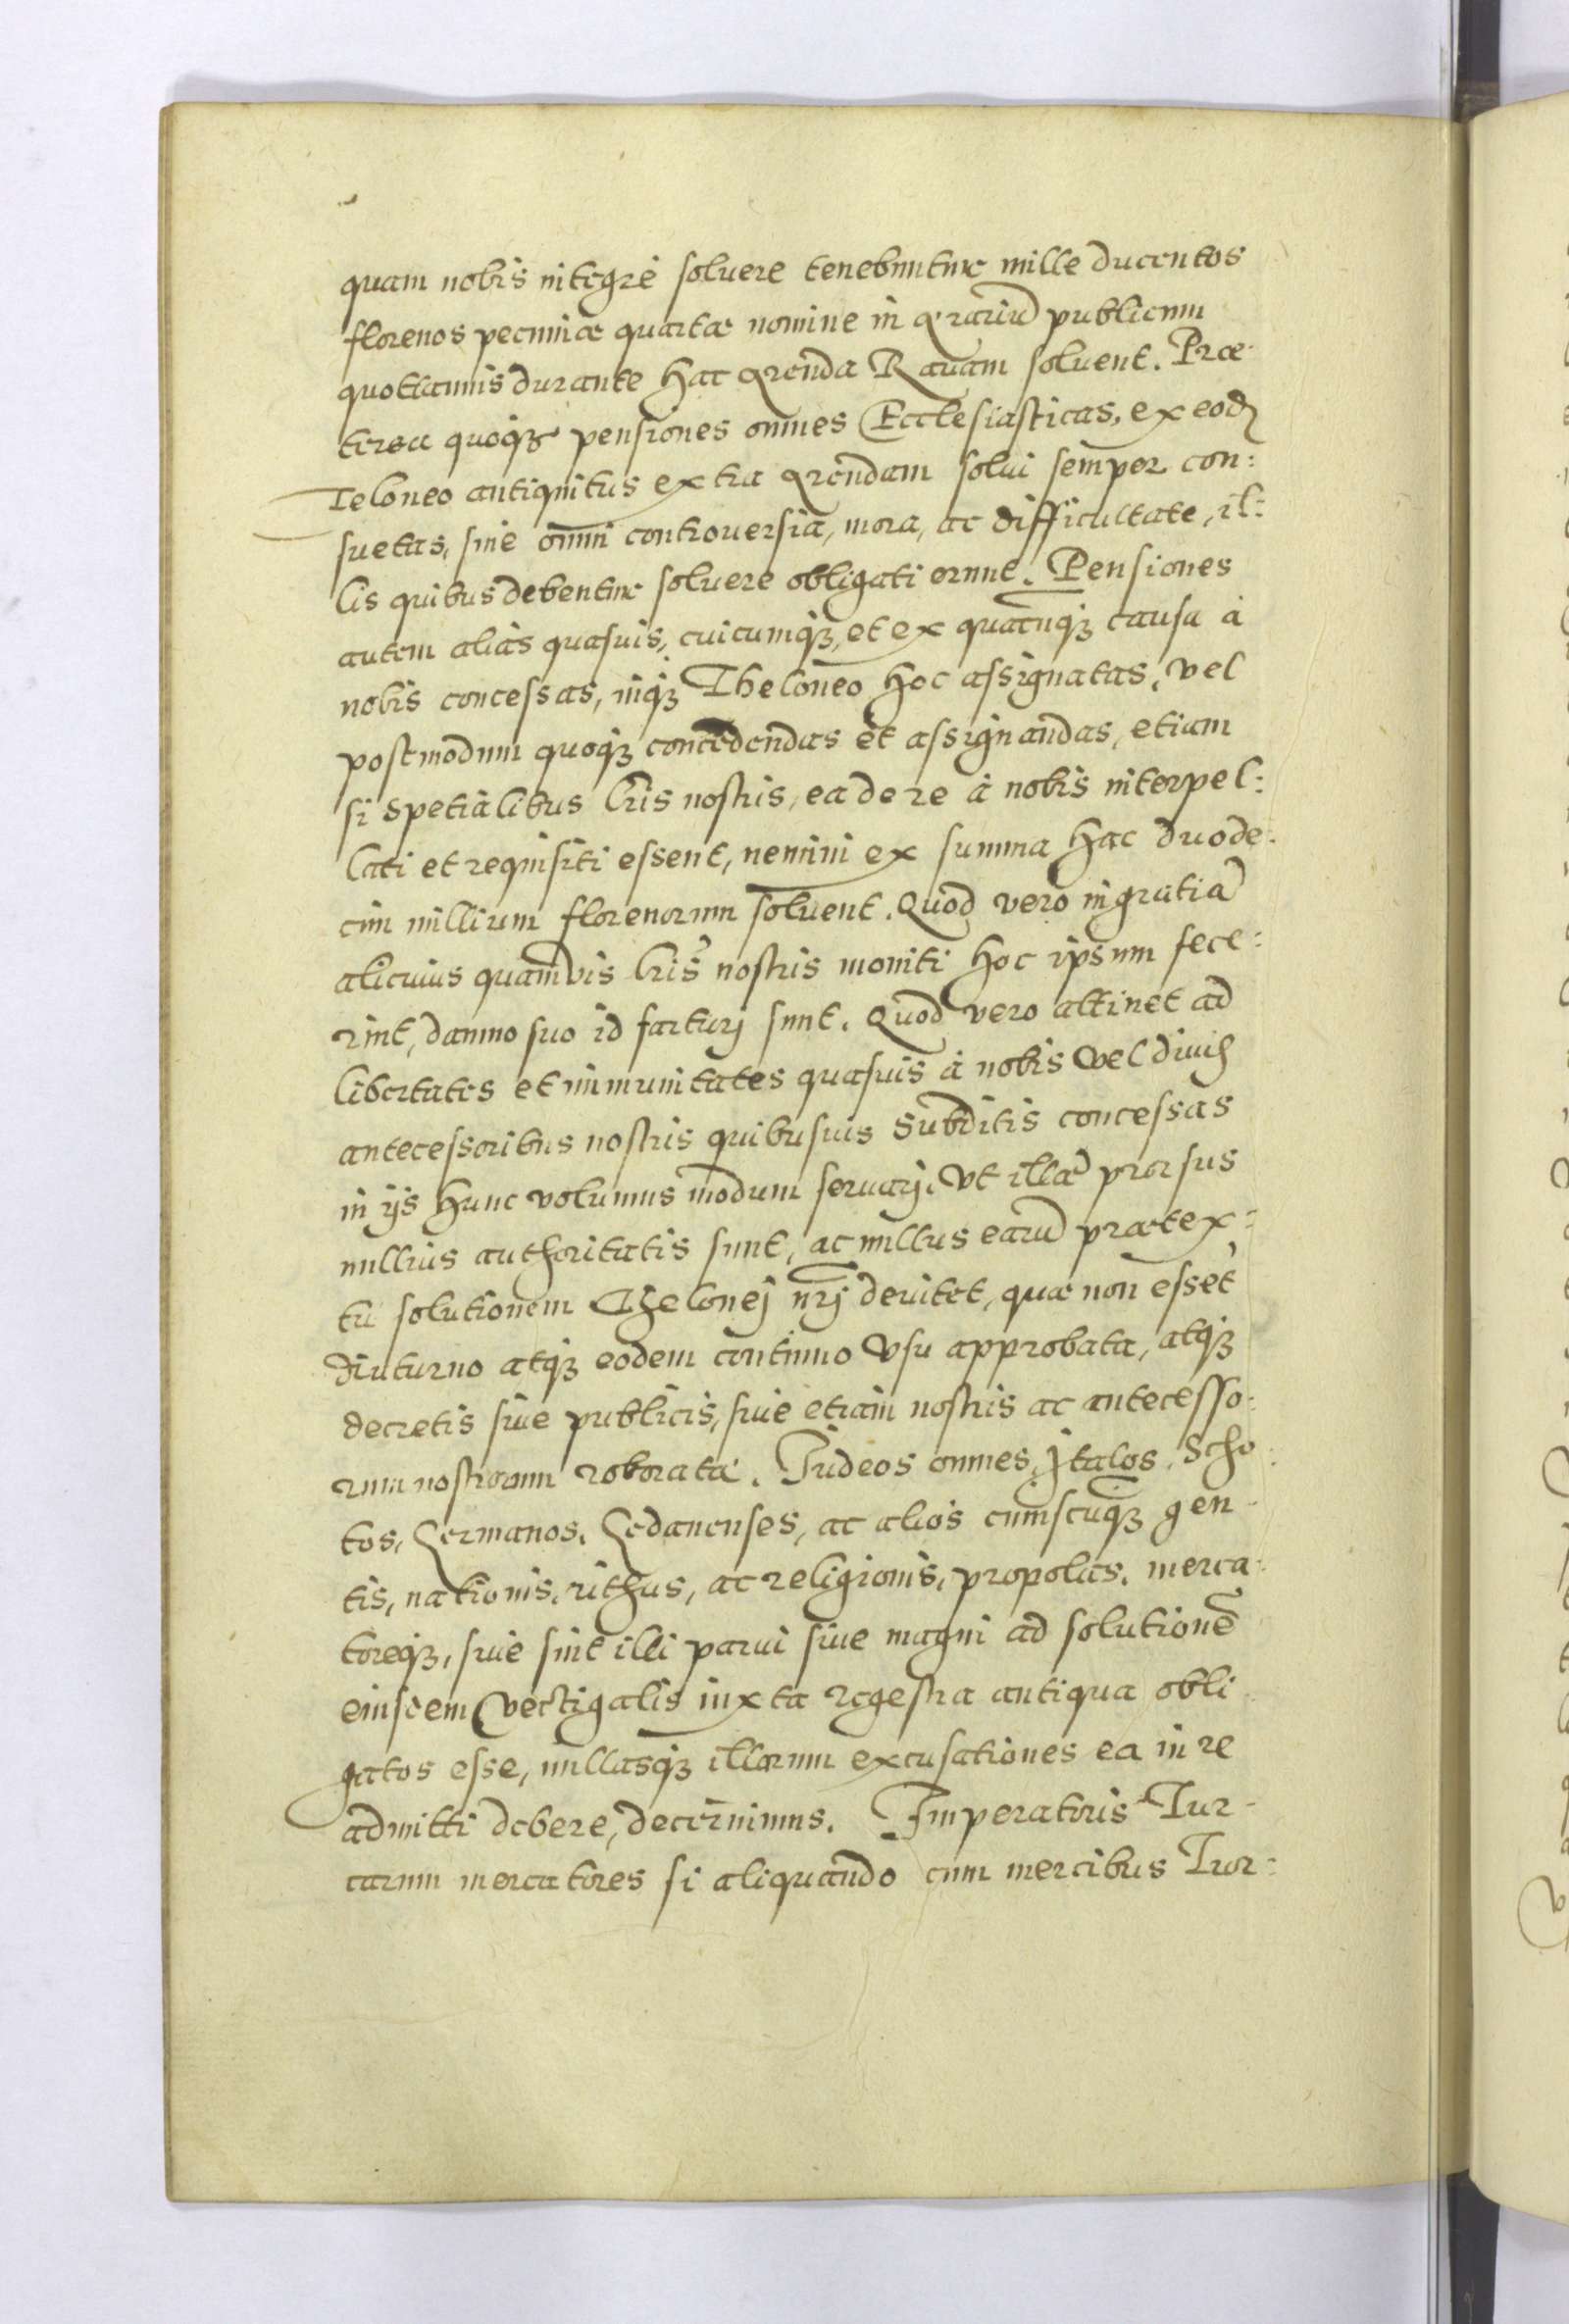 quam nobis integrè soluere tenebuntur mille ducentos
florenos pecuniæ quartæ nomine in ærariũ publicum
quottannis durante hac arenda Ravam soluent. Præ-
terea quoq3 pensiones omnes Ecclesiasticas, ex eod
Teloneo antiquitus extra arendam solui semper con:
suetas, sine omni controuersia, mora, ac difficultate, il:
lis quibus debentur soluere obligati erunt. Pensiones
autem alias quasuis, cuicumq3, et ex quacuq3 causa à
nobis concessas, inq3 Theloneo hoc assignatas, vel
postmodum quoq3 concedendas et assignandas, etiam
si spetialibus lris nostris, ea de re à nobis interpel:
lati et requisiti essent, nemini ex summa hac duode:
cim millium florenorum soluent. Quod vero in gratiã
alicuius quamvis lris nostris moniti hoc ipsum fece:
rint, damno suo id facturj sunt. Quod vero attinet ad
libertates et immunitates quasuis à nobis vel diuis
antecessoribus nostris quibusuis subditis concessas
in ijs hunc volumus modum seruarj. Vt illæ prorsus
nullius authoritatis sint, ac nullus earũ prætex:
tu solutionem Thelonej nrj deuitet, quæ non esset
diuturno atq3 eodem continuo vsu approbata, atq3
decretis siue publicis, siue etiam nostris ac antecesso:
rum nostrorum roborata. Judeos omnes, Jtalos, Scho:
tos, Germanos, Gedanenses, ac alios cuiuscuq3 gen-
tis, nationis, rithus, ac religionis, propolas, merca:
toreq3, siue sint illi parui siue magni ad solutionẽ
eiusdem vectigalis iuxta regestra antiqua obli
gatos esse, nullasq3 illorum excusationes ea in re
admitti debere, decernimus. Imperatoris Tur-
carum mercatores si aliquando cum mercibus Tur: